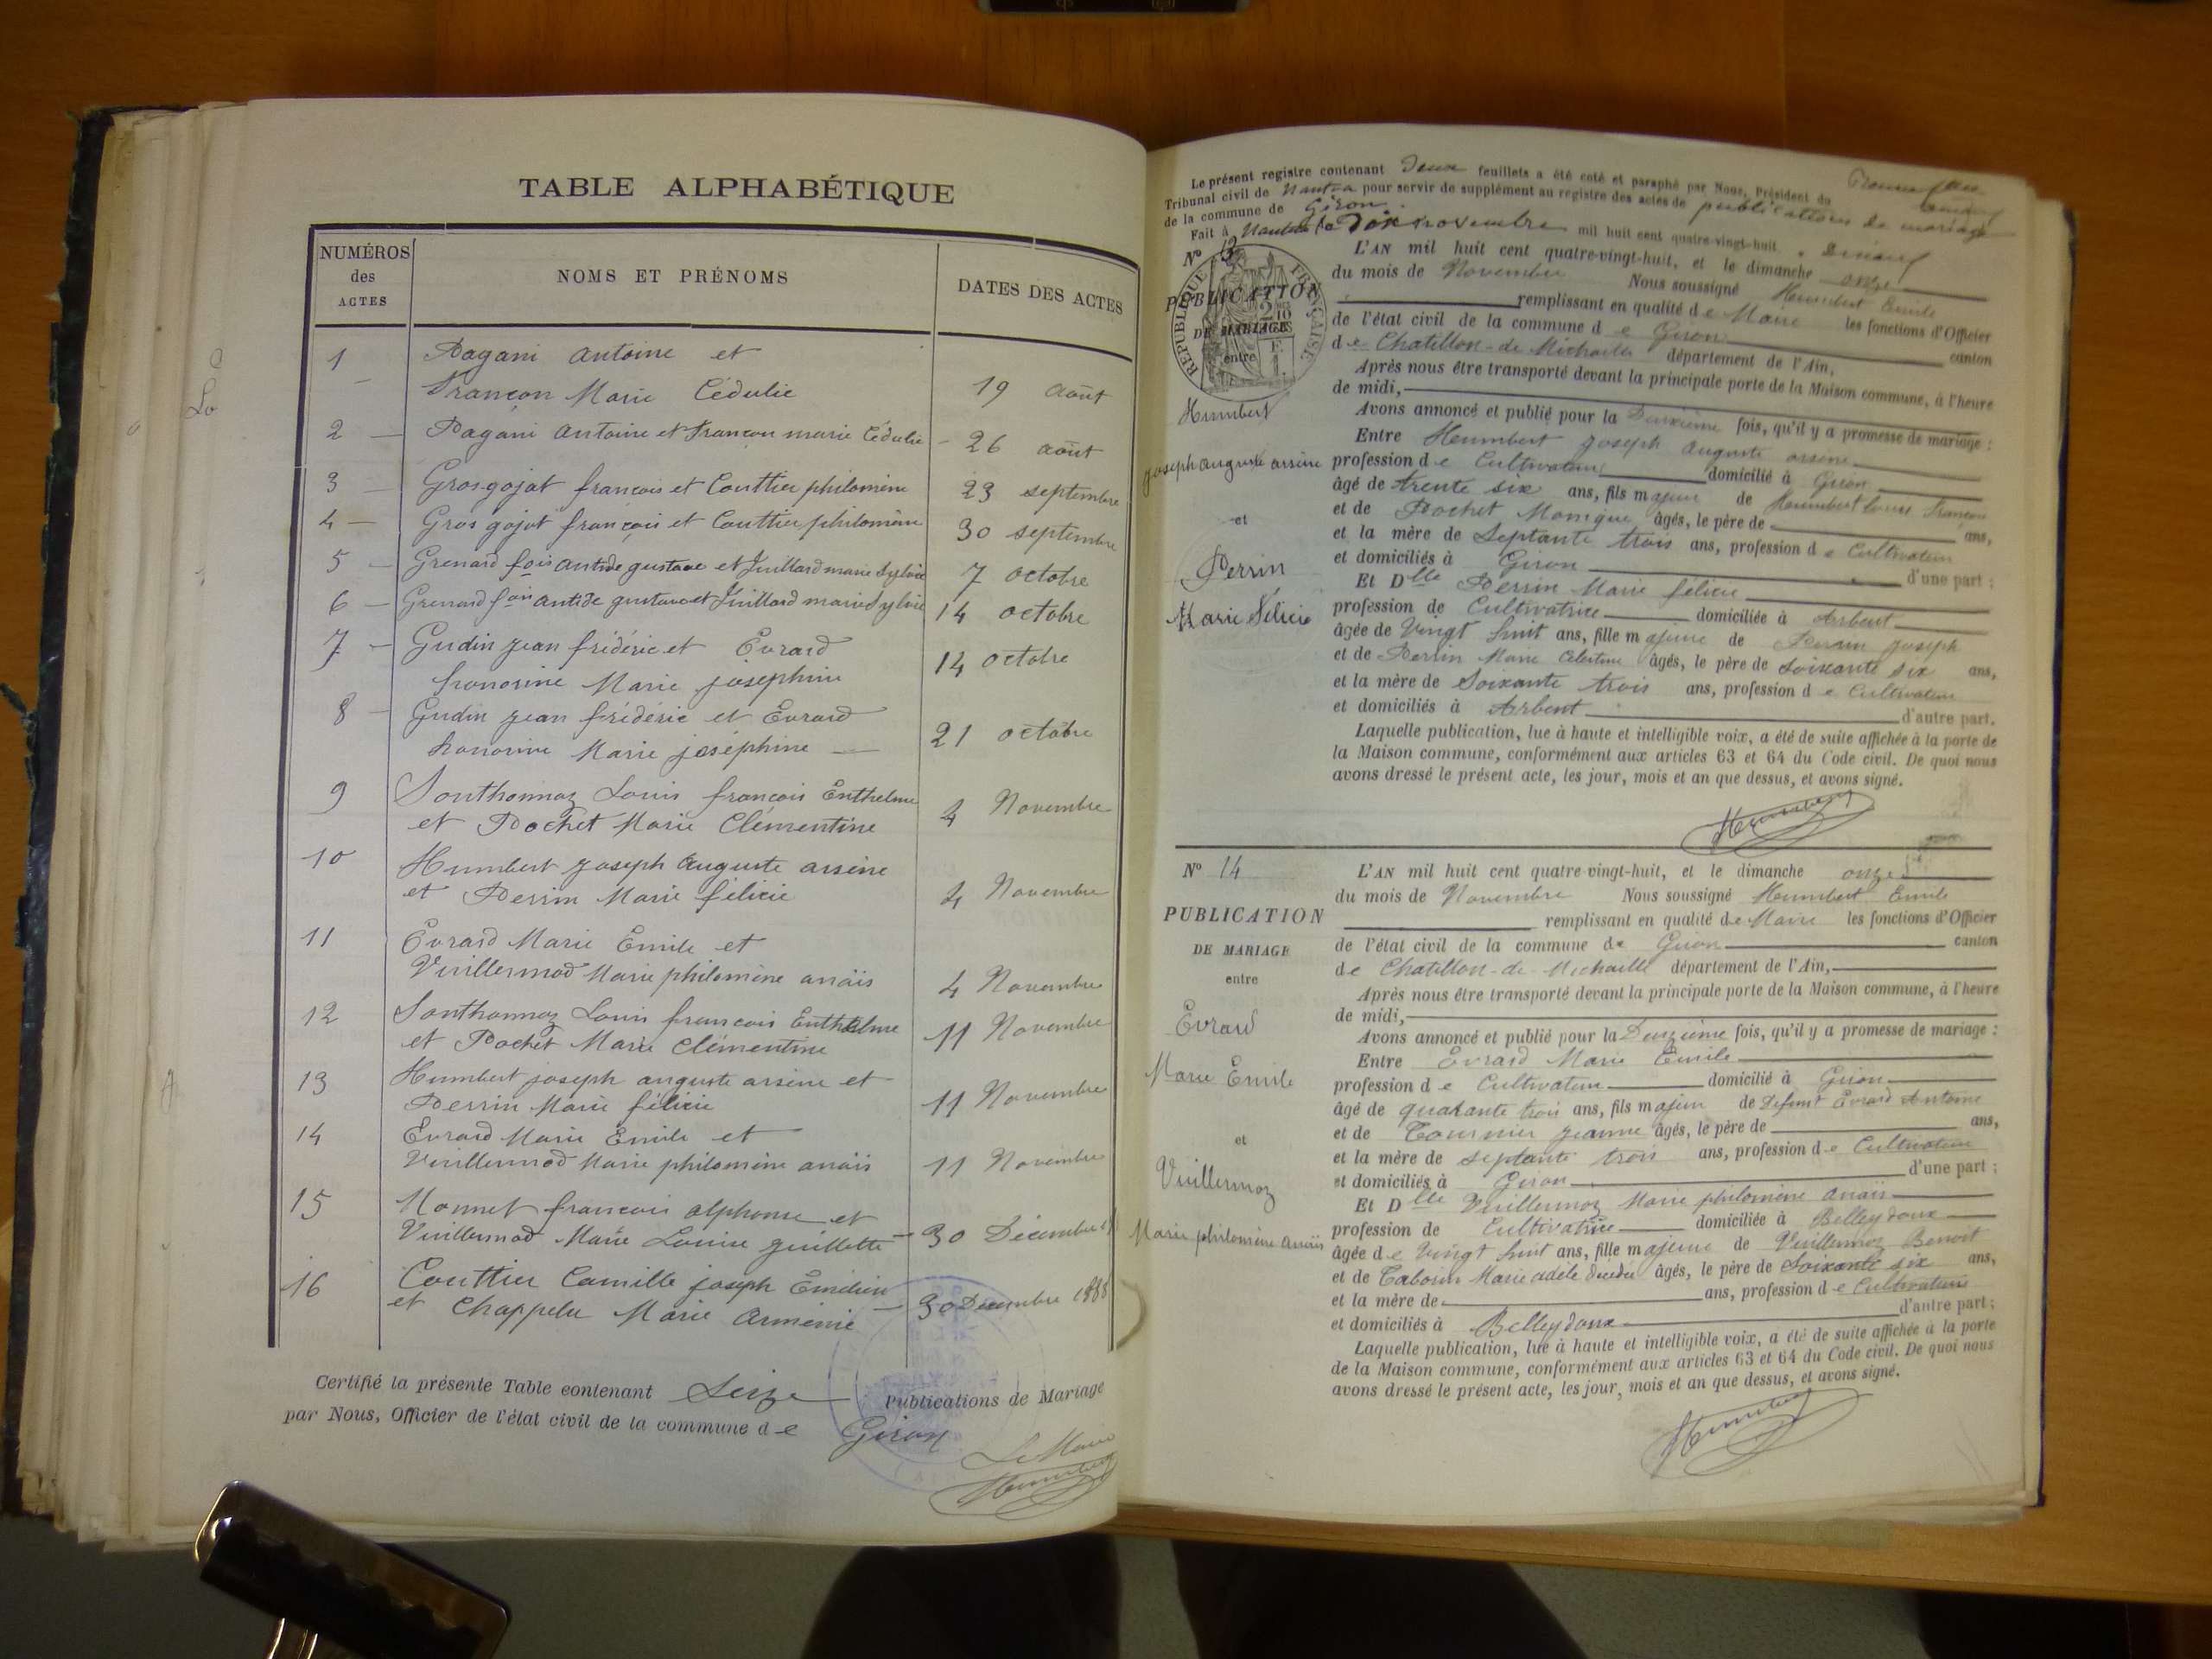 TABLE ALPHABÉTIQUE
NUMÉROS des ACTES
NOMS ET PRÉNOMS
DATES DES ACTES
1 Pagani Antoine et
Françon Marie Cédulie 19 août
2 — Pagani Antoine et Françon marie Cédulie – 26 août
3 — Grosgojat françois et Couttier philomène 23 septembre
4 — Gros gojat françois et Couttier philomène 30 septembre
5 — Grenard fois antide gustave et Juillard marie Sylvie 7 octobre
6 — Grenard fois antide gustave et Juillard marie Sylvie 14 octobre
7 — Gudin jean frédéric et Evrard
honorine Marie joséphine 14 octobre
8 — Gudin jean frédéric et Evrard
honorine Marie joséphine — 21 octobre
9 Sonthonnaz Louis françois Enthelme
et Pochet Marie Clémentine 4 Novembre
10 Humbert joseph auguste arsène
et Perrin Marie félicie 4 Novembre
11 Evrard Marie Emile et
Vuillermod Marie philomène anaïs 4 Novembre
12 Sonthonnaz Louis françois Enthelme
et Pochet Marie Clémentine 11 Novembre
13 Humbert joseph auguste arsène et
Perrin Marie félicie 11 Novembre
14 Evrard Marie Emile et
Vuillermod Marie philomène anaïs 11 Novembre
15 Monnet françois alphonse et
Vuillermod Marie Louise juillette — 30 Décembre
16 Couttier Camille joseph Emilien
et Chappelu Marie Arménie — 30 Décembre 1888
Certifié la présente Table contenant Seize Publications de Mariage
par Nous, Officier de l'état civil de la commune de Giron
Le Maire
Humbert
Le présent registre contenant Deux feuillets a été coté et paraphé par Nous, Président du
Tribunal civil de Nantua pour servir de supplément au registre des actes de publications de mariage
de la commune de Giron.
Fait à Nantua le Dix novembre mil huit cent quatre-vingt-huit.
N° 13
RÉPUBLIQUE FRANÇAISE
PUBLICATION
DE MARIAGE
entre
Humbert
joseph auguste arsène
et
Perrin
Marie Félicie
L'AN mil huit cent quatre-vingt-huit, et le dimanche onze
du mois de Novembre Nous soussigné Humbert Emile
remplissant en qualité de Maire les fonctions d'Officier
de l'état civil de la commune de Giron canton
de Chatillon-de-Michaille département de l'Ain,
Après nous être transporté devant la principale porte de la Maison commune, à l'heure
de midi,
Avons annoncé et publié pour la Deuxième fois, qu'il y a promesse de mariage :
Entre Humbert joseph auguste arsène
profession de Cultivateur domicilié à Giron
âgé de trente six ans, fils majeur de Humbert Louis françois
et de Pochet Monique âgés, le père de ans,
et la mère de Septante trois ans, profession de Cultivateur
et domiciliés à Giron d'une part ;
Et Dlle Perrin Marie félicie
profession de Cultivatrice domiciliée à Arbent
âgée de Vingt huit ans, fille majeure de Perrin joseph
et de Perrin Marie Célestine âgés, le père de Soixante six ans,
et la mère de Soixante trois ans, profession de Cultivateur
et domiciliés à Arbent d'autre part.
Laquelle publication, lue à haute et intelligible voix, a été de suite affichée à la porte de
la Maison commune, conformément aux articles 63 et 64 du Code civil. De quoi nous
avons dressé le présent acte, les jour, mois et an que dessus, et avons signé.
Humbert
N° 14
PUBLICATION
DE MARIAGE
entre
Evrard
Marie Emile
et
Vuillermoz
Marie philomène anaïs
L'AN mil huit cent quatre-vingt-huit, et le dimanche onze
du mois de Novembre Nous soussigné Humbert Emile
remplissant en qualité de Maire les fonctions d'Officier
de l'état civil de la commune de Giron canton
de Chatillon-de-Michaille département de l'Ain,
Après nous être transporté devant la principale porte de la Maison commune, à l'heure
de midi,
Avons annoncé et publié pour la Deuxième fois, qu'il y a promesse de mariage :
Entre Evrard Marie Emile
profession de Cultivateur domicilié à Giron
âgé de quarante trois ans, fils majeur de Défunt Evrard Antoine
et de Tournier jeanne âgés, le père de ans,
et la mère de septante trois ans, profession de Cultivateur
et domiciliés à Giron d'une part ;
Et Dlle Vuillermoz Marie philomène anaïs
profession de Cultivatrice domiciliée à Belleydoux
âgée de Vingt huit ans, fille majeure de Vuillermoz Benoit
et de Tabourin Marie adèle décédée âgés, le père de Soixante six ans,
et la mère de ans, profession de Cultivateurs
et domiciliés à Belleydoux d'autre part ;
Laquelle publication, lue à haute et intelligible voix, a été de suite affichée à la porte
de la Maison commune, conformément aux articles 63 et 64 du Code civil. De quoi nous
avons dressé le présent acte, les jour, mois et an que dessus, et avons signé.
Humbert